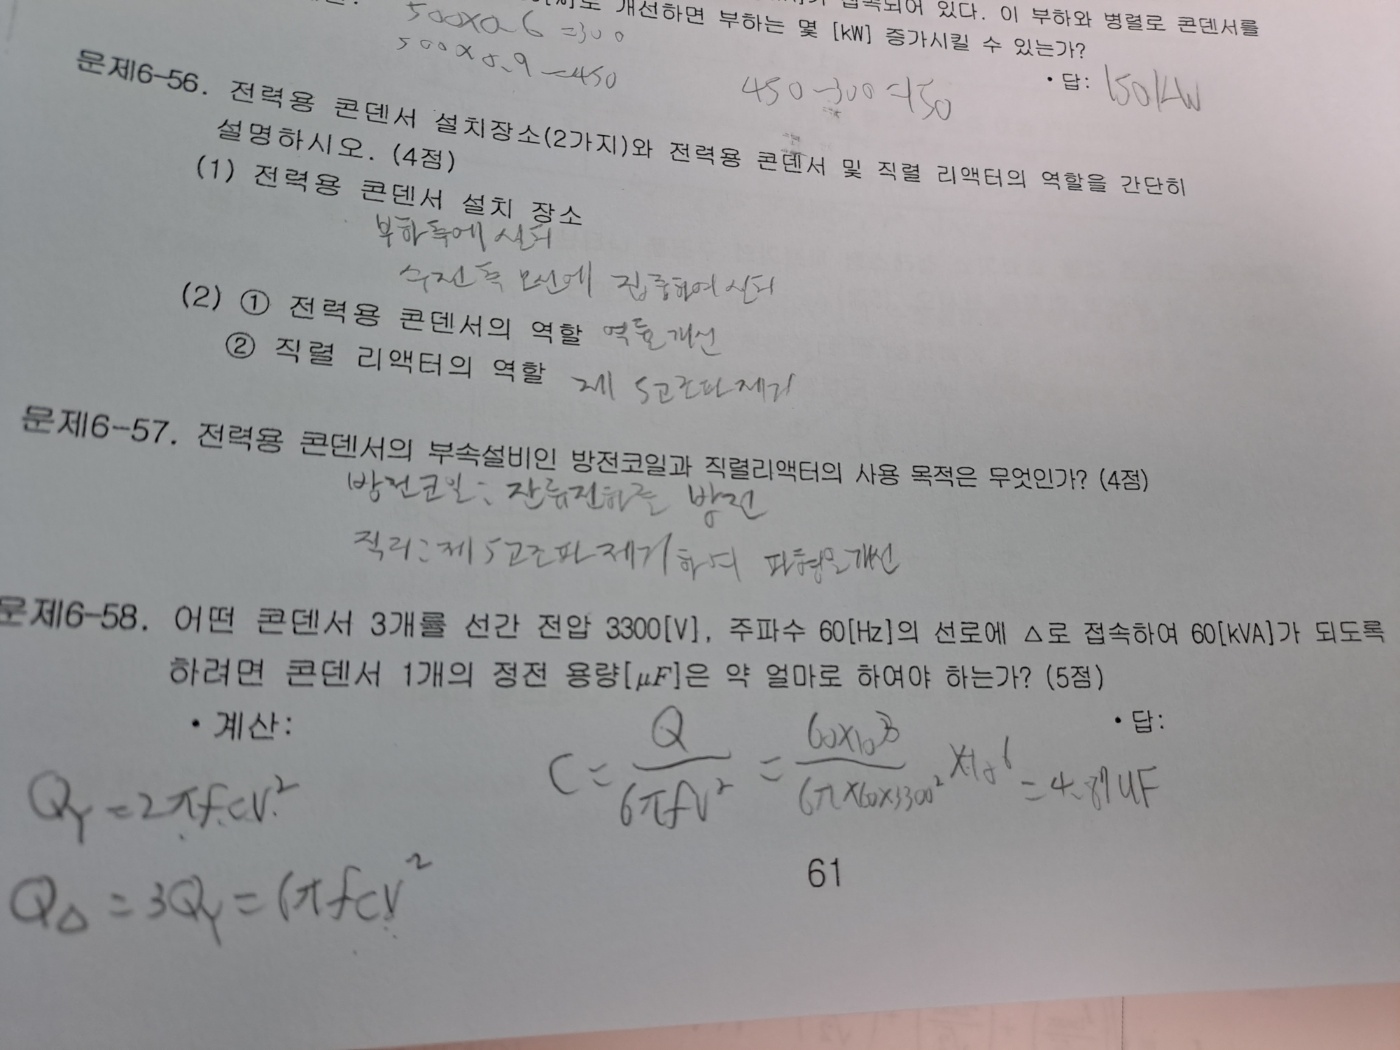 접속되어 있다. 이 부하와 병렬로 콘덴서를
개선하면 부하는 몇 [kW] 증가시킬 수 있는가?
500×0.6=300
500×0.9=450
450-300=150
• 답: 150kW
문제6-56. 전력용 콘덴서 설치장소(2가지)와 전력용 콘덴서 및 직렬 리액터의 역할을 간단히
설명하시오. (4점)
(1) 전력용 콘덴서 설치 장소
부하측에 설치
수전측 모선에 집중하여 설치
(2) ① 전력용 콘덴서의 역할 역률개선
② 직렬 리액터의 역할 제 5고조파 제거
문제6-57. 전력용 콘덴서의 부속설비인 방전코일과 직렬리액터의 사용 목적은 무엇인가? (4점)
방전코일: 잔류전하를 방전
직리: 제 5고조파 제거하여 파형을 개선
문제6-58. 어떤 콘덴서 3개를 선간 전압 3300[V], 주파수 60[Hz]의 선로에 △로 접속하여 60[kVA]가 되도록
하려면 콘덴서 1개의 정전 용량[μF]은 약 얼마로 하여야 하는가? (5점)
• 계산:
• 답:
C = Q/6πfV² = 60×10³/6π×60×3300² ×10⁶ = 4.87uF
Q_Y = 2πfcV²
Q_△ = 3Q_Y = 6πfcV²
61